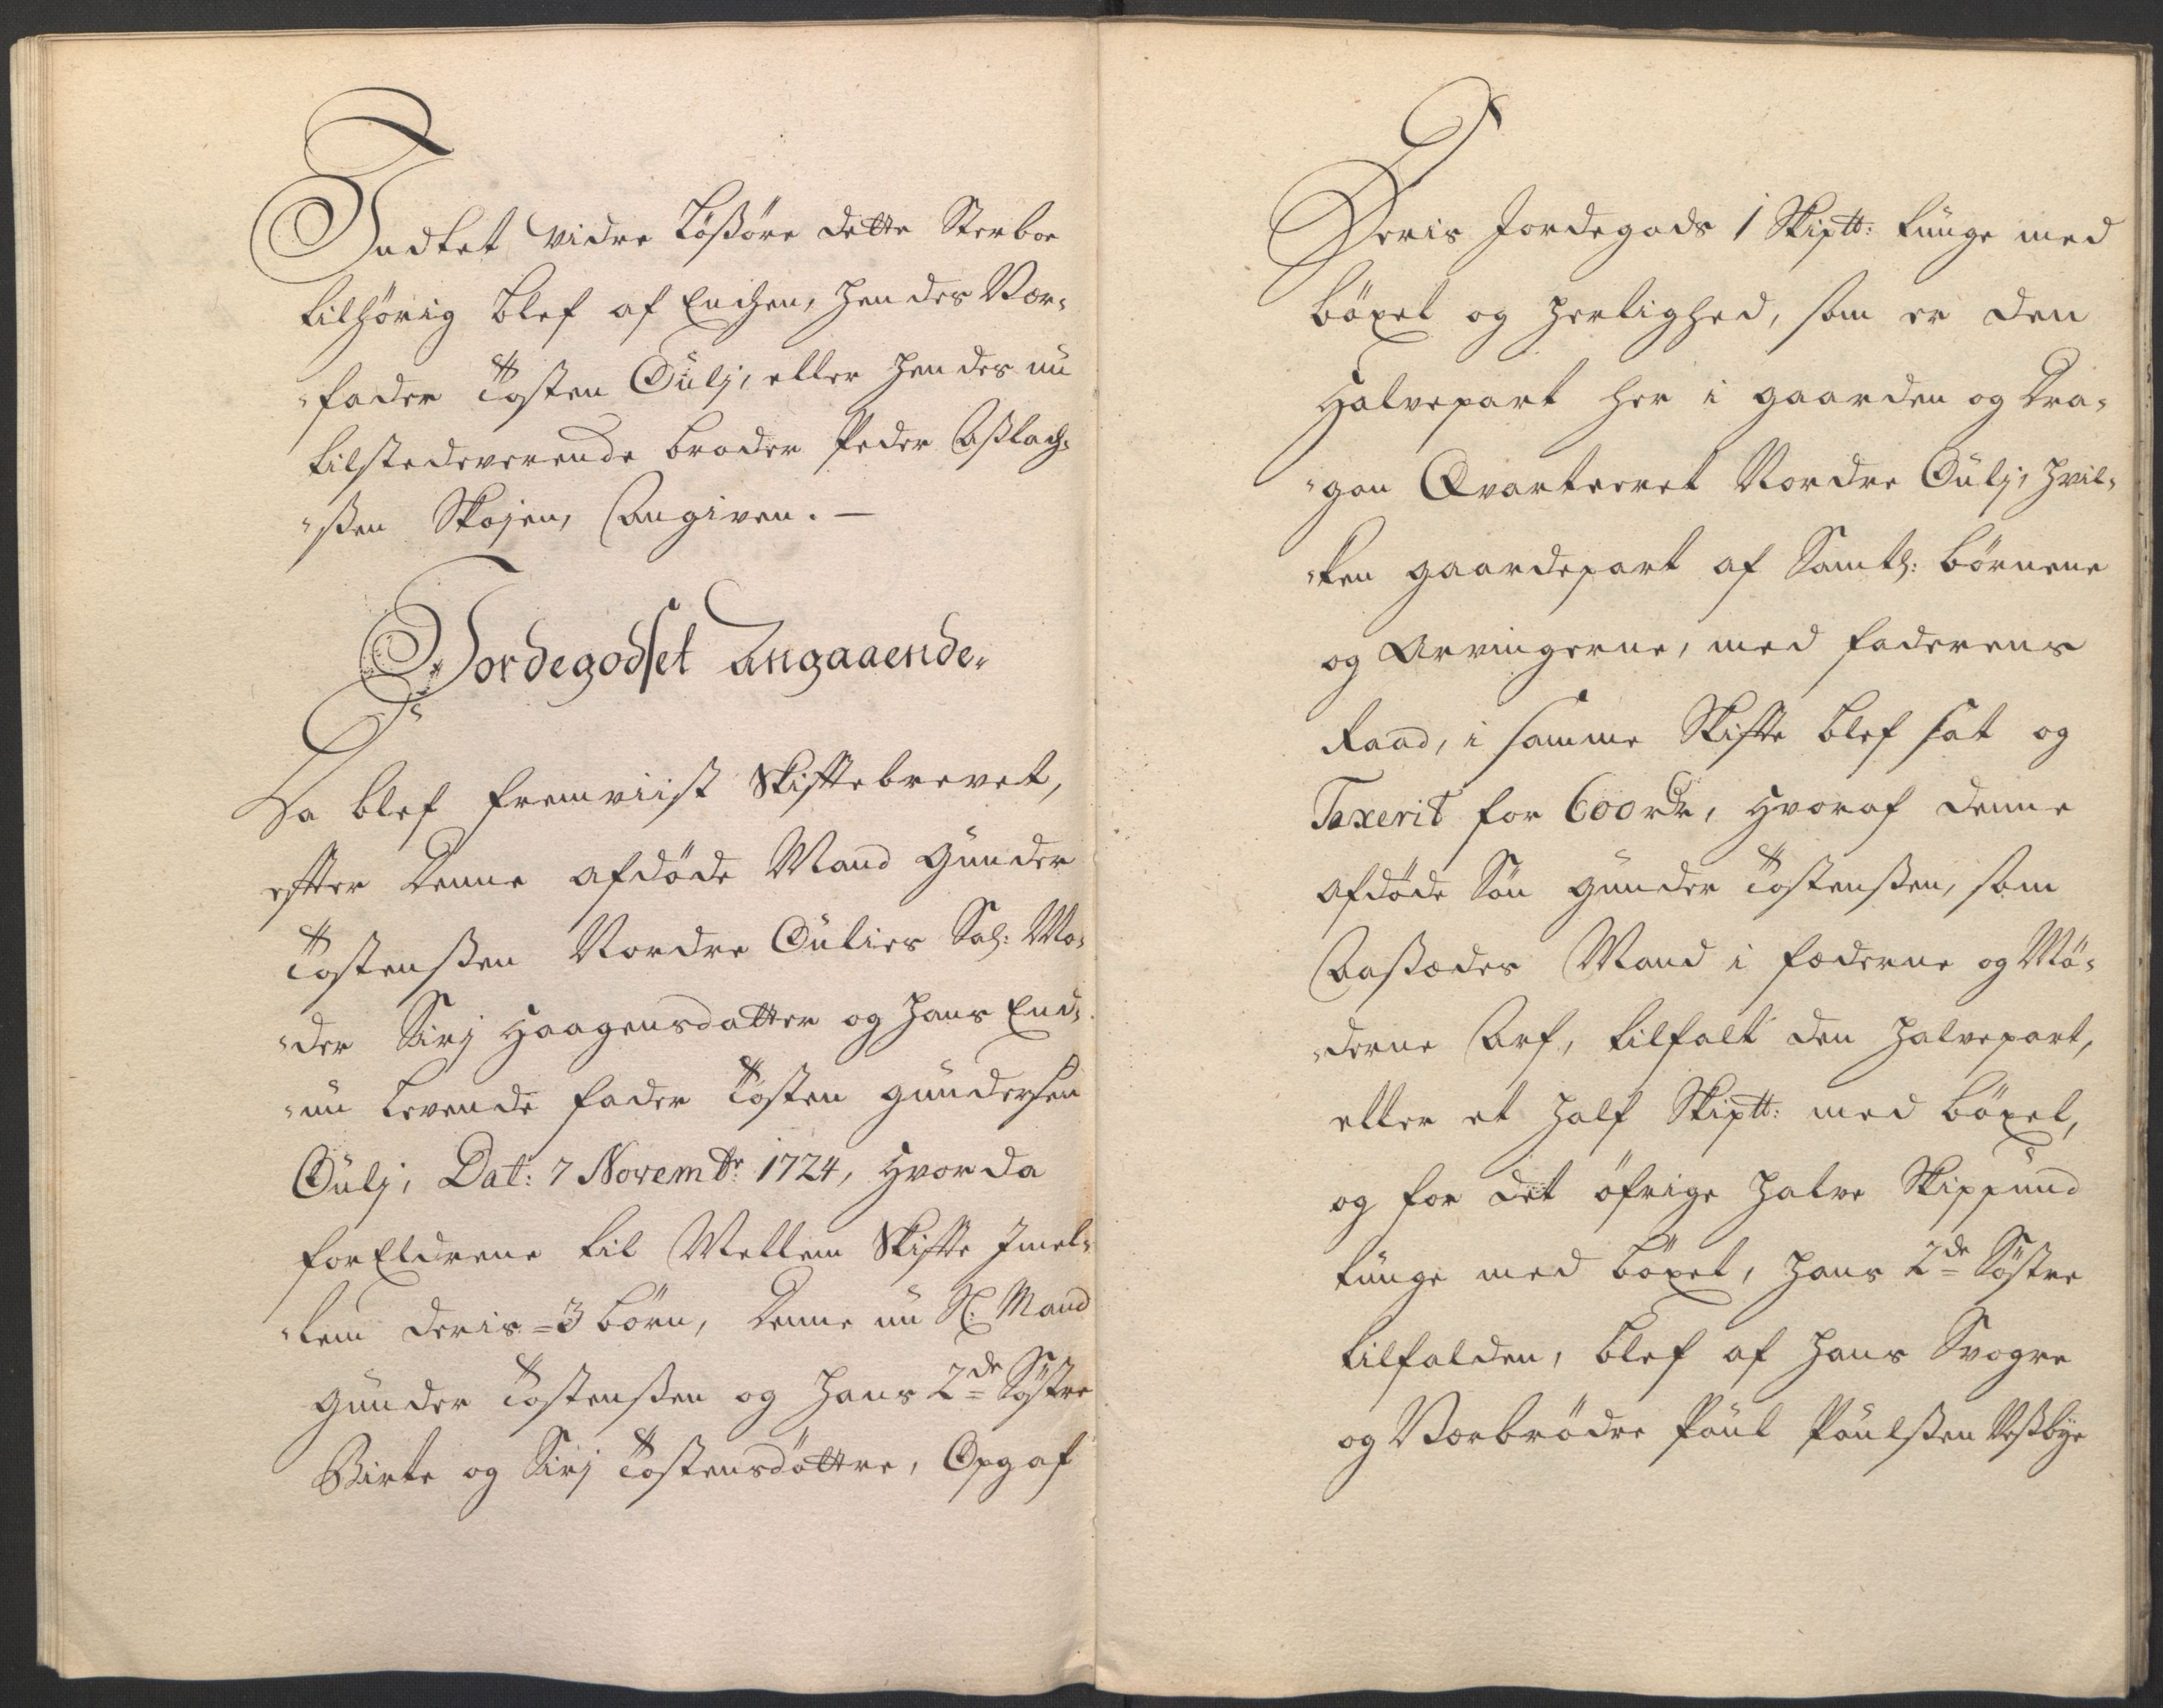 Indtet vidre Lößöre dette Sterboe
tilhörig blef af Enchen, hendes Vær-
"fader Tosten Gulj, eller hendes nu
tilstedeverende broder Peder Aßlach-
"ßen Skojen, Angiven. —
Jordegodset Angaaende.
Da blef fremviist Skiftebrevet,
efter denne afdöde Mand Gunder
Tostenßen Nordre Gulies Sal: Mo-
"der Sirj Haagensdatter og hans End-
"nu levende fader Tosten Gundersen
Gulj, Dat: 7 Novembr: 1724, hvor da
forEldrene til Mellem Skifte Imel-
"lem deris 3 börn, denne nu Sl. Mand
Gunder Tostenßen og hans 2de Söstre
Birte og Sirj Tostensdöttre, Opgaf
Deris Jordegods 1 Skiptt: tunge med
böxel og herlighed, som er den
Halvepart her i gaarden og Dra-
"gon Qvarteeret Nordre Gulj, hvil-
"ken gaardepart af Samtl: börnene
og Arvingerne, med faderens
Raad, i samme Skifte blef sat og
Taxerit for 600 rdr, hvoraf denne
afdöde Sön Gunder Tostenßen, som
Aaßædes Mand i fæderne og Mö-
"derne Arf, tilfalt den halvepart,
eller et half Skiptt: med böxel,
og for det öfrige halve Skippund
tunge med böxel, hans 2de Söstre
tilfalden, blef af hans Svogre
og Værbrödre Poul Poulßen Veßbye